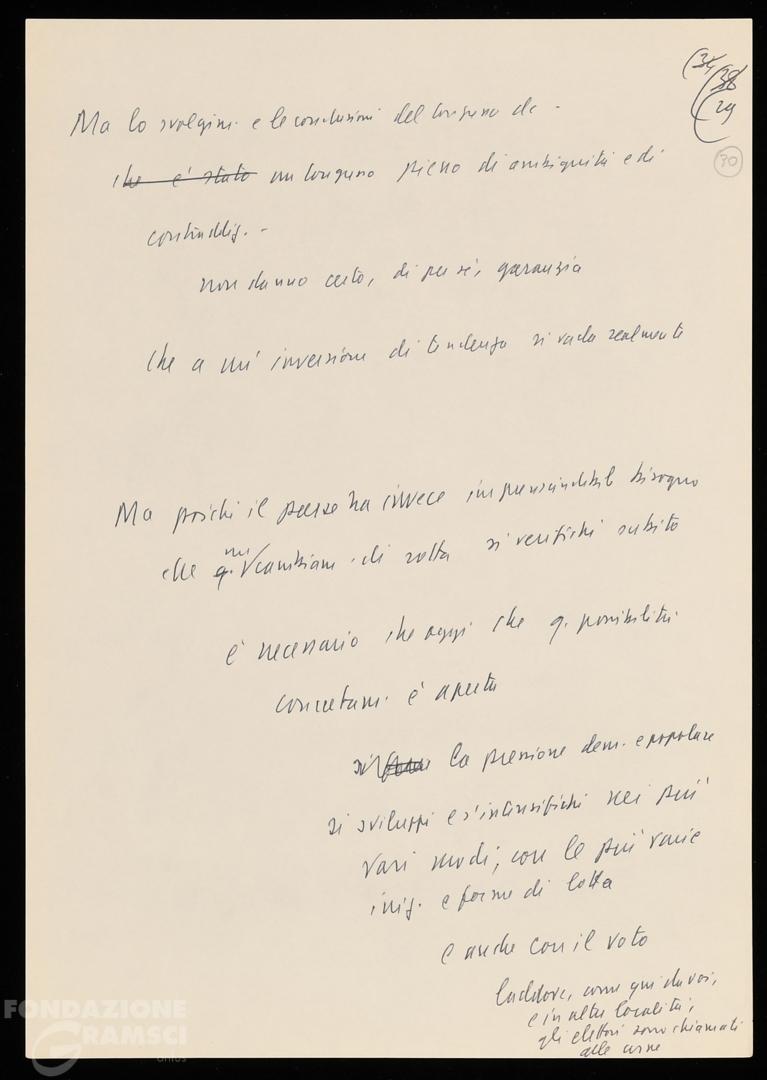 (34
(38
(29
30
Ma lo svolgim. e le conclusioni del congresso dc -
che è stato un congresso pieno di ambiguità e di
contraddiz. -
non danno certo, di per sé, garanzia
che a un' inversione di tendenza si vada realmente
Ma poiché il paese ha invece imprescindibile bisogno
che q. un cambiam. di rotta si verifichi subito
è necessario che oggi che q. possibilità
concretam. è aperta
si la pressione dem. e popolare
si sviluppi e s'intensifichi nei più
vari modi, con le più varie
iniz. e forme di lotta
e anche con il voto
laddove, come qui da voi,
e in altre località,
gli elettori sono chiamati
alle urne
FONDAZIONE
GRAMSCI
onlus